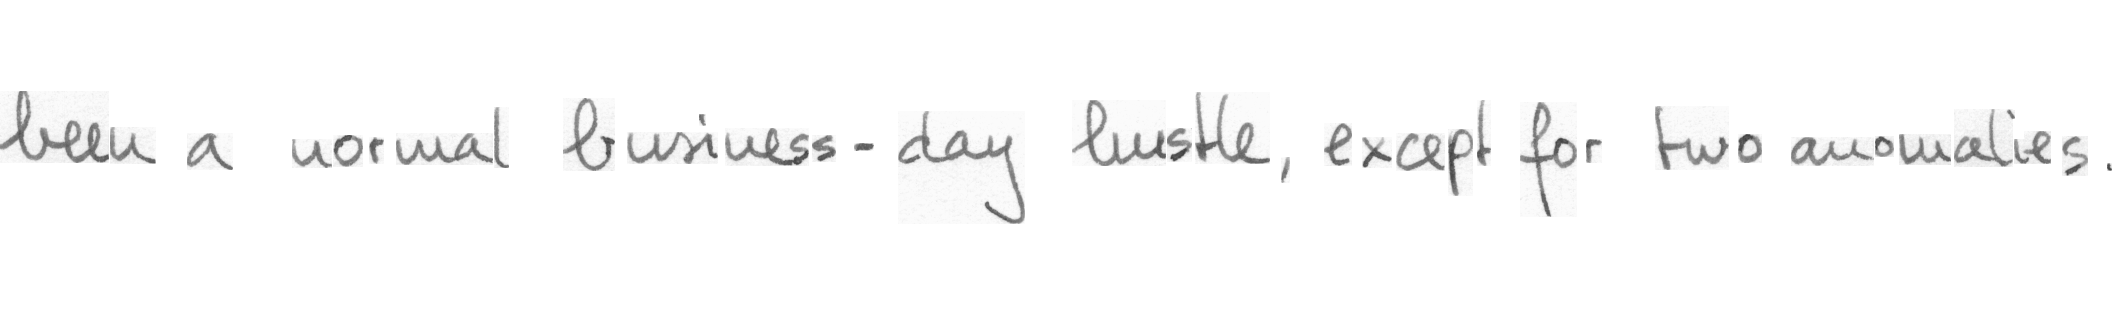 been a normal business-day hustle, except for two anomalies.